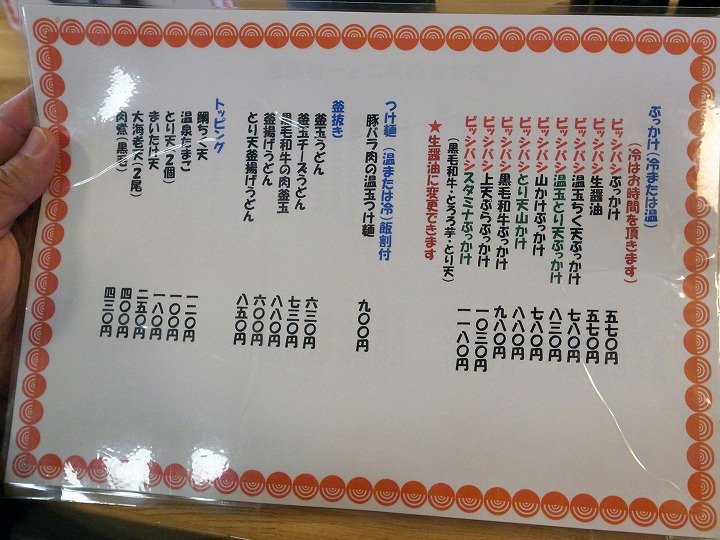 ぶっかけ(冷または温)
(冷はお時間を頂きます)
ビッシバシぶっかけ 五七〇円
ビッシバシ生醤油 五七〇円
ビッシバシ温玉ちく天ぶっかけ 七八〇円
ビッシバシ温玉とり天ぶっかけ 八三〇円
ビッシバシ山かけぶっかけ 七八〇円
ビッシバシとり天山かけ 八八〇円
ビッシバシ黒毛和牛ぶっかけ 九八〇円
ビッシバシ上天ぷらぶっかけ 一〇三〇円
ビッシバシスタミナぶっかけ 一一八〇円
(黒毛和牛・とろろ芋・とり天)
★生醤油に変更できます
つけ麺(温または冷)飯割付
豚バラ肉の温玉つけ麺 九〇〇円
釜抜き
釜玉うどん 六三〇円
釜玉チーズうどん 七三〇円
黒毛和牛の肉釜玉 八八〇円
釜揚げうどん 六〇〇円
とり天釜揚げうどん 八五〇円
トッピング
鯛ちく天 一二〇円
温泉たまご 一〇〇円
とり天(2個) 一八〇円
まいたけ天 二五〇円
大海老天(2尾) 四〇〇円
肉煮(黒毛) 四三〇円